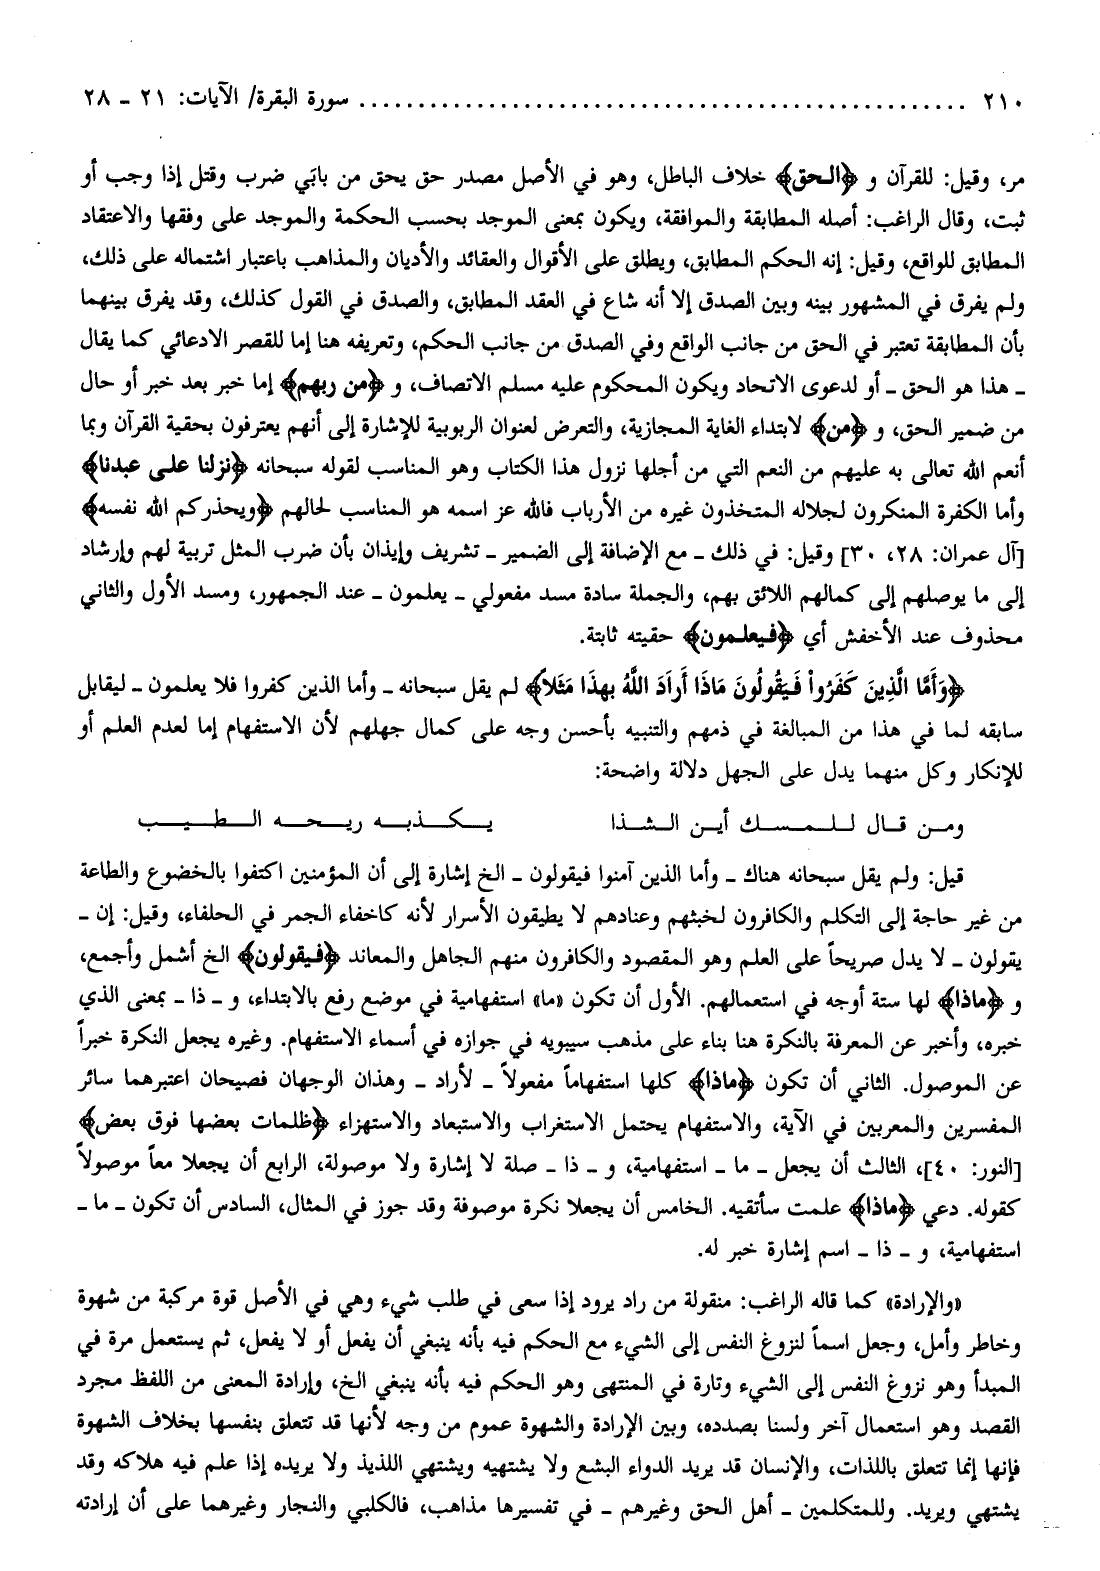 ٢١٠ ........................................................ سورة البقرة/ الآيات: ٢١ ـ ٢٨
مر، وقيل: للقرآن و ﴿الحق﴾ خلاف الباطل، وهو في الأصل مصدر حق يحق من بابَي ضرب وقتل إذا وجب أو
ثبت، وقال الراغب: أصله المطابقة والموافقة، ويكون بمعنى الموجد بحسب الحكمة والموجد على وفقها والاعتقاد
المطابق للواقع، وقيل: إنه الحكم المطابق، ويطلق على الأقوال والعقائد والأديان والمذاهب باعتبار اشتماله على ذلك،
ولم يفرق في المشهور بينه وبين الصدق إلا أنه شاع في العقد المطابق، والصدق في القول كذلك، وقد يفرق بينهما
بأن المطابقة تعتبر في الحق من جانب الواقع وفي الصدق من جانب الحكم، وتعريفه هنا إما للقصر الادعائي كما يقال
ـ هذا هو الحق ـ أو لدعوى الاتحاد ويكون المحكوم عليه مسلم الاتصاف، و ﴿من ربهم﴾ إما خبر بعد خبر أو حال
من ضمير الحق، و ﴿من﴾ لابتداء الغاية المجازية، والتعرض لعنوان الربوبية للإشارة إلى أنهم يعترفون بحقية القرآن وبما
أنعم الله تعالى به عليهم من النعم التي من أجلها نزول هذا الكتاب وهو المناسب لقوله سبحانه ﴿نزلنا على عبدنا﴾
وأما الكفرة المنكرون لجلاله المتخذون غيره من الأرباب فالله عز اسمه هو المناسب لحالهم ﴿ويحذركم الله نفسه﴾
[آل عمران: ٢٨، ٣٠] وقيل: في ذلك ـ مع الإضافة إلى الضمير ـ تشريف وإيذان بأن ضرب المثل تربية لهم وإرشاد
إلى ما يوصلهم إلى كمالهم اللائق بهم، والجملة سادة مسد مفعولي ـ يعلمون ـ عند الجمهور، ومسد الأول والثاني
محذوف عند الأخفش أي ﴿فيعلمون﴾ حقيته ثابتة.
﴿وَأَمَّا الَّذِينَ كَفَرُواْ فَيَقُولُونَ مَاذَا أَرادَ اللَّهُ بِهذَا مَثَلاً﴾ لم يقل سبحانه ـ وأما الذين كفروا فلا يعلمون ـ ليقابل
سابقه لما في هذا من المبالغة في ذمهم والتنبيه بأحسن وجه على كمال جهلهم لأن الاستفهام إما لعدم العلم أو
للإنكار وكل منهما يدل على الجهل دلالة واضحة:
ومن قال للمسك أين الشذا يكذبه ريحه الطيب
قيل: ولم يقل سبحانه هناك ـ وأما الذين آمنوا فيقولون ـ الخ إشارة إلى أن المؤمنين اكتفوا بالخضوع والطاعة
من غير حاجة إلى التكلم والكافرون لخبثهم وعنادهم لا يطيقون الأسرار لأنه كاخفاء الجمر في الحلفاء، وقيل: إن ـ
يقولون ـ لا يدل صريحاً على العلم وهو المقصود والكافرون منهم الجاهل والمعاند ﴿فيقولون﴾ الخ أشمل وأجمع،
و ﴿ماذا﴾ لها ستة أوجه في استعمالهم. الأول أن تكون «ما» استفهامية في موضع رفع بالابتداء، و ـ ذا ـ بمعنى الذي
خبره، وأخبر عن المعرفة بالنكرة هنا بناء على مذهب سيبويه في جوازه في أسماء الاستفهام. وغيره يجعل النكرة خبراً
عن الموصول. الثاني أن تكون ﴿ماذا﴾ كلها استفهاماً مفعولاً ـ لأراد ـ وهذان الوجهان فصيحان اعتبرهما سائر
المفسرين والمعربين في الآية، والاستفهام يحتمل الاستغراب والاستبعاد والاستهزاء ﴿ظلمات بعضها فوق بعض﴾
[النور: ٤٠]، الثالث أن يجعل ـ ما ـ استفهامية، و ـ ذا ـ صلة لا إشارة ولا موصولة، الرابع أن يجعلا معاً موصولاً
كقوله. دعي ﴿ماذا﴾ علمت سأتقيه. الخامس أن يجعلا نكرة موصوفة وقد جوز في المثال، السادس أن تكون ـ ما ـ
استفهامية، و ـ ذا ـ اسم إشارة خبر له.
«والإرادة» كما قاله الراغب: منقولة من راد يرود إذا سعى في طلب شيء وهي في الأصل قوة مركبة من شهوة
وخاطر وأمل، وجعل اسماً لنزوغ النفس إلى الشيء مع الحكم فيه بأنه ينبغي أن يفعل أو لا يفعل، ثم يستعمل مرة في
المبدأ وهو نزوغ النفس إلى الشيء وتارة في المنتهى وهو الحكم فيه بأنه ينبغي الخ، وإرادة المعنى من اللفظ مجرد
القصد وهو استعمال آخر ولسنا بصدده، وبين الإرادة والشهوة عموم من وجه لأنها قد تتعلق بنفسها بخلاف الشهوة
فإنها إنما تتعلق باللذات، والإنسان قد يريد الدواء البشع ولا يشتهيه ويشتهي اللذيذ ولا يريده إذا علم فيه هلاكه وقد
يشتهي ويريد. وللمتكلمين ـ أهل الحق وغيرهم ـ في تفسيرها مذاهب، فالكلبي والنجار وغيرهما على أن إرادته